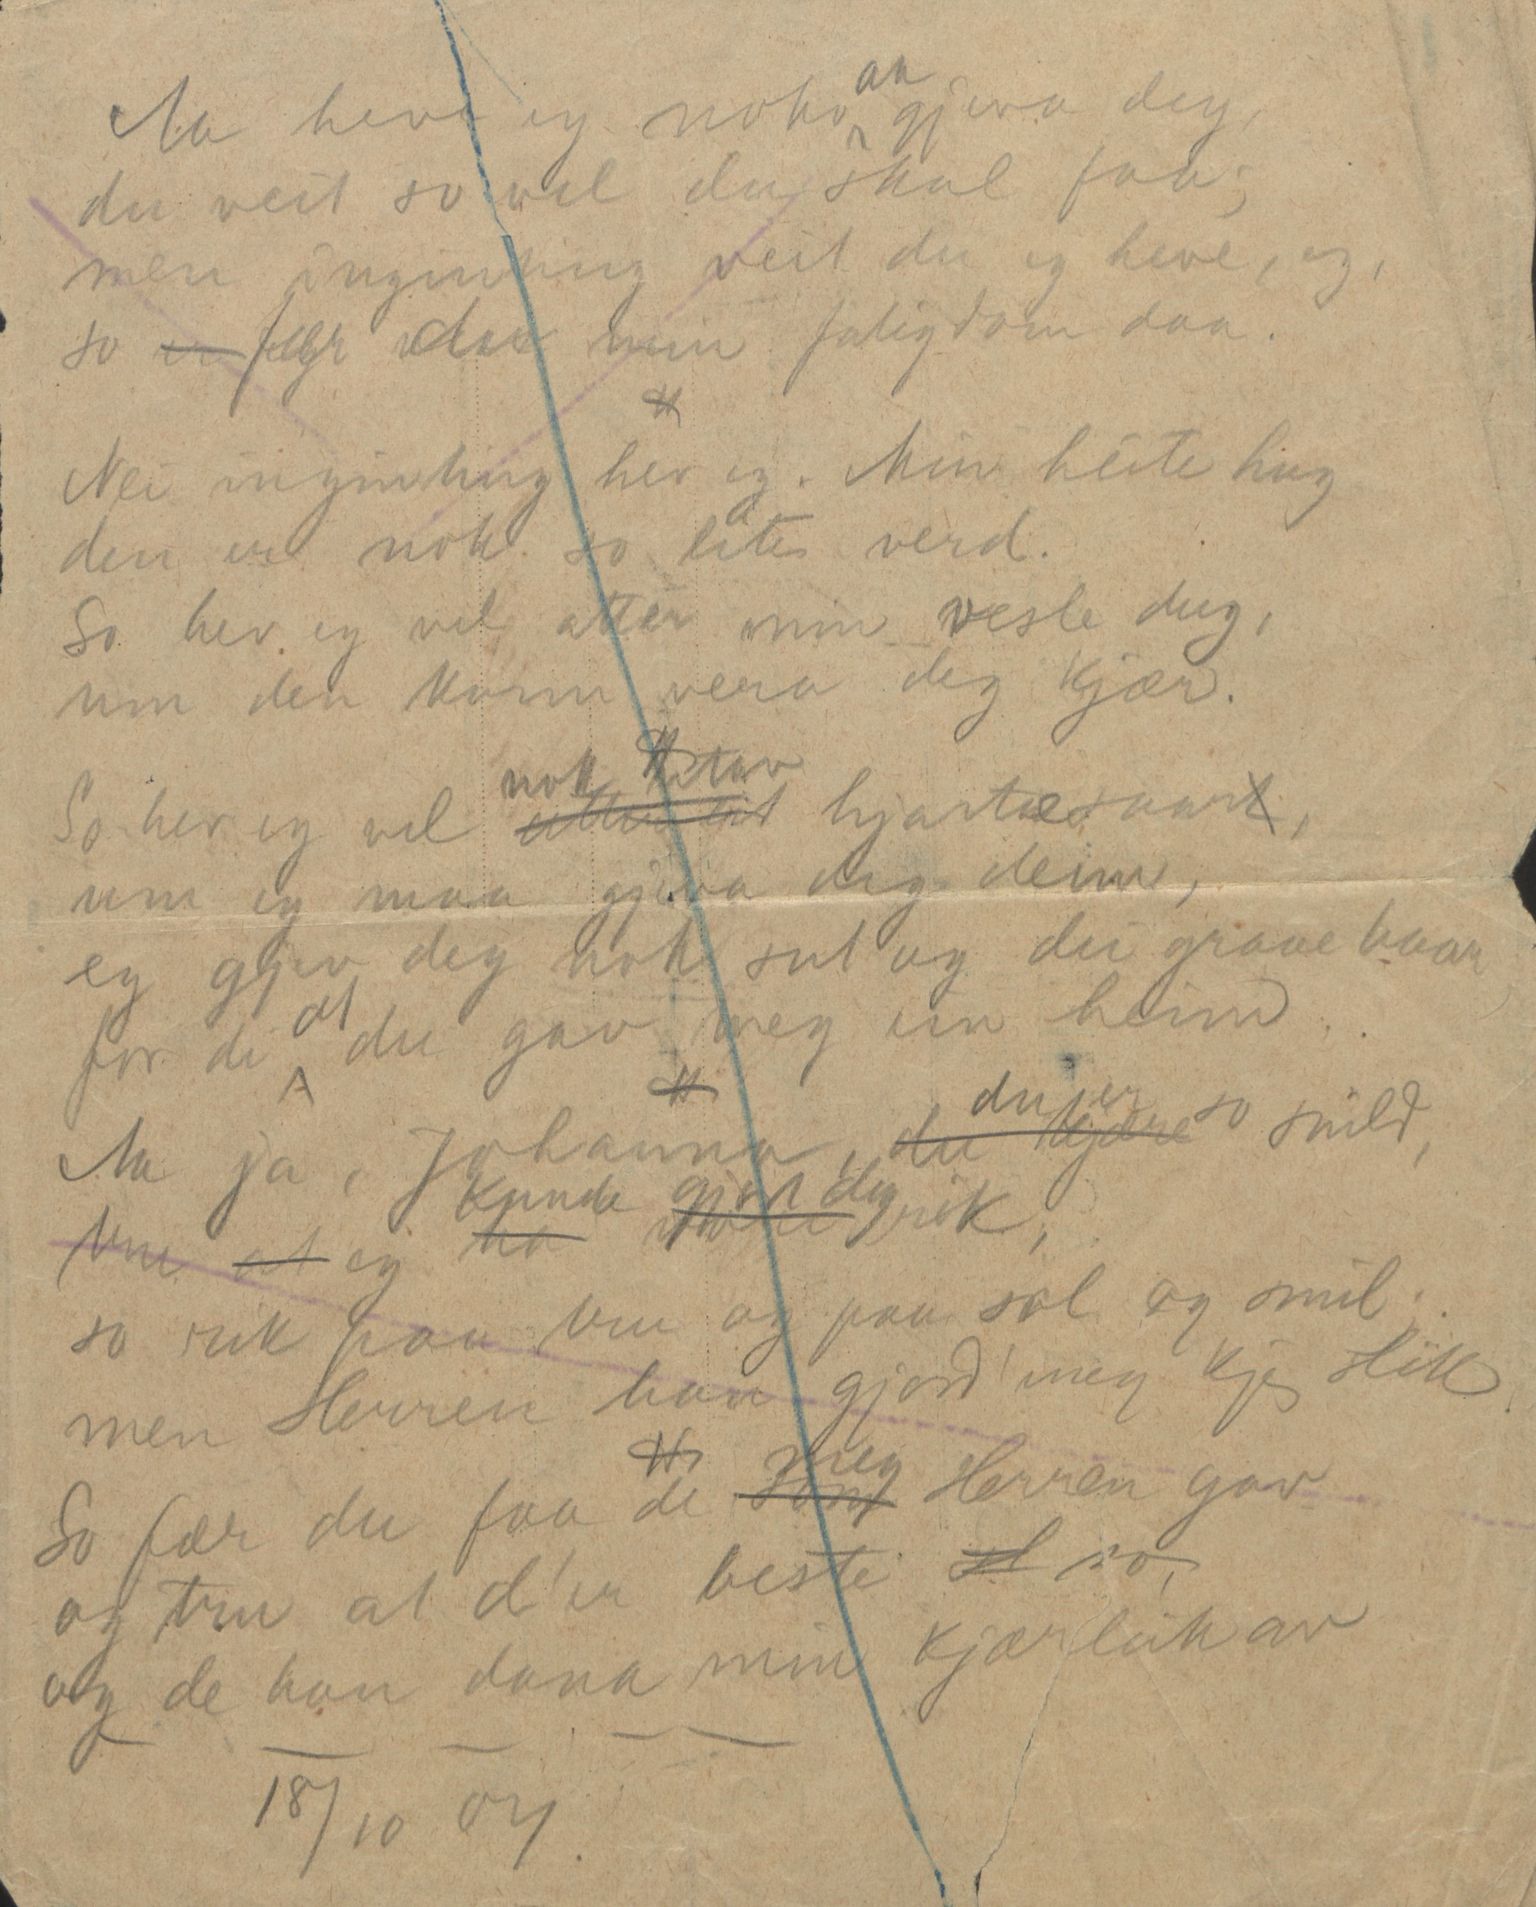 Aa heve eg noko aa gjeva deg,
du veit so vel du skal faa;
men inginting veit du eg heve, eg,
so fær du min fatigdom daa.
Nei inginting hev eg. Min heite hug
den er nok so lite verd.
So hev eg vel atter min vesle dug,
um den kann vera deg kjær.
So hev eg vel nok av hjartesaar,
um eg maa gjeva deg deim,
eg gjev deg nok sut og dei graae haar
for de at du gav meg ein heim.
Aa ja, Johanna, du er so snild,
Um eg kunde gjort deg rik,
so rik paa tru og paa sol og smil;
men Herren han gjord' meg kje slik
So fær du faa de meg Herren gav
og tru at d'er beste so,
og de han dana min kjærleik av
18/10 04.